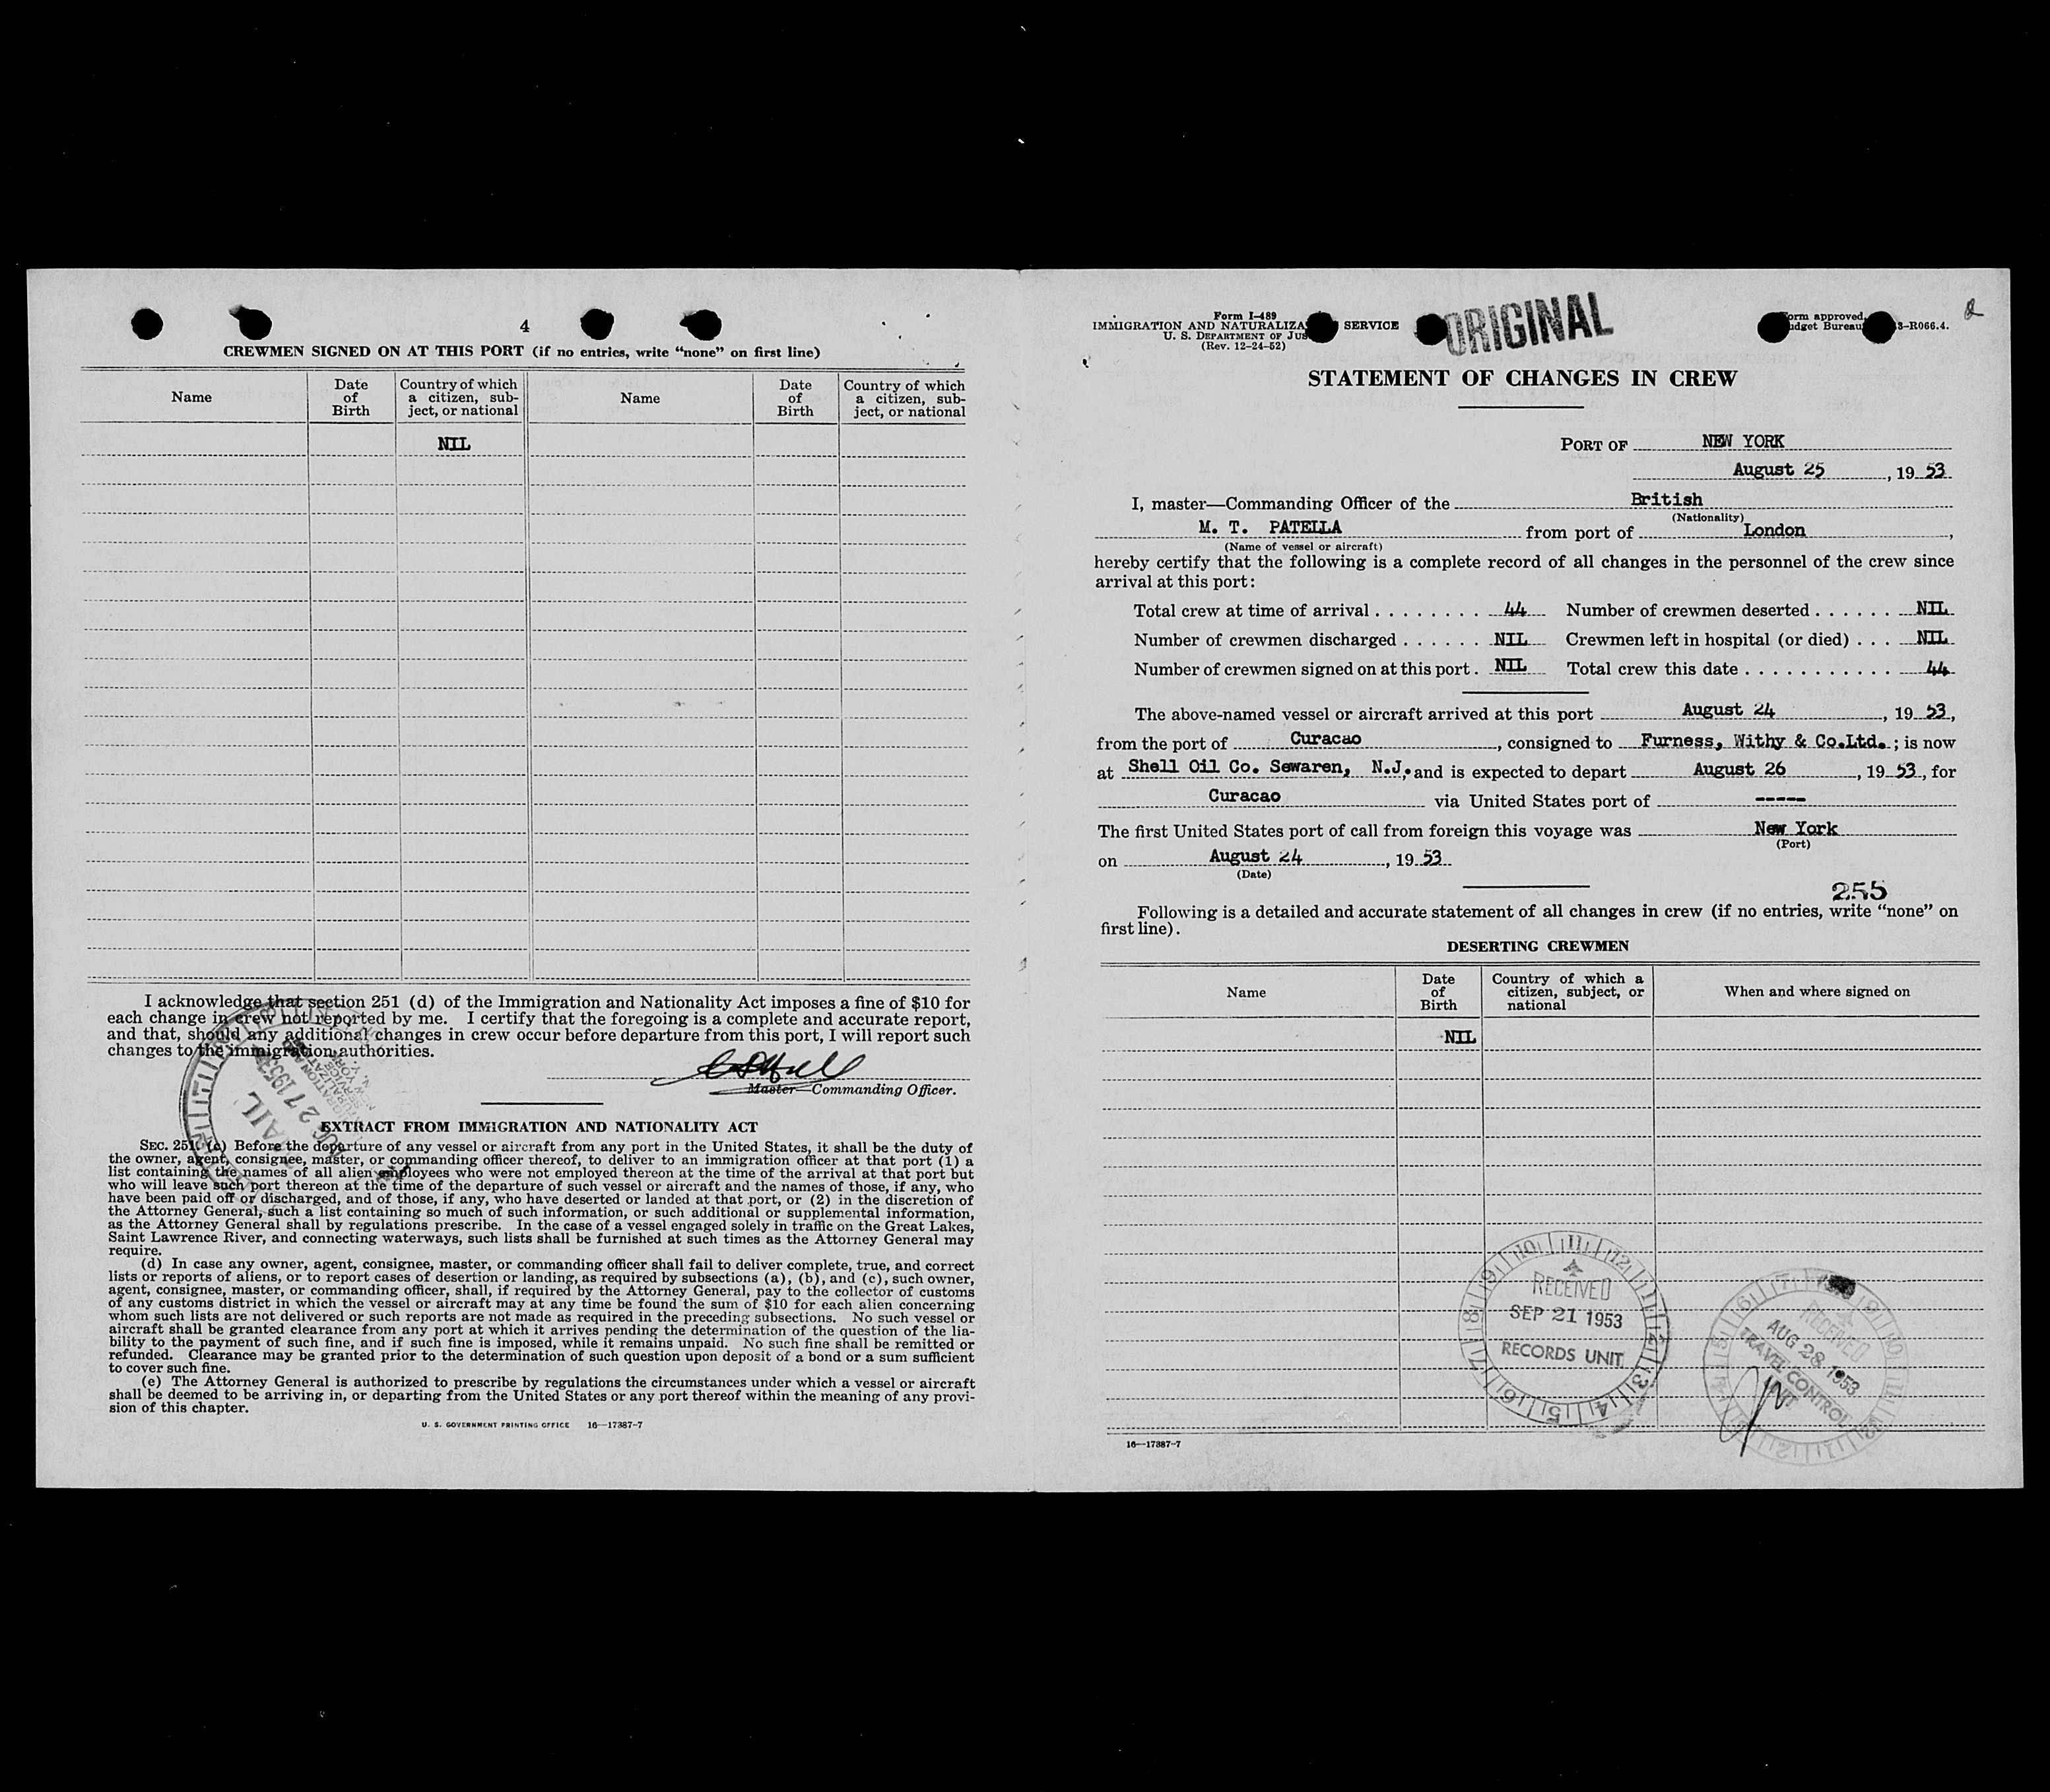 4
CREWMEN SIGNED ON AT THIS PORT (if no entries, write “none” on first line)
Name
Date of Birth
Country of which a citizen, sub-ject, or national
Name
Date of Birth
Country of which a citizen, sub-ject, or national
NIL
I acknowledge that section 251 (d) of the Immigration and Nationality Act imposes a fine of $10 for
each change in crew not reported by me. I certify that the foregoing is a complete and accurate report,
and that, should any additional changes in crew occur before departure from this port, I will report such
changes to the immigration authorities.
Master—Commanding Officer.
MAIL
AUG 27 1953
EXTRACT FROM IMMIGRATION AND NATIONALITY ACT
SEC. 251. (c) Before the departure of any vessel or aircraft from any port in the United States, it shall be the duty of
the owner, agent, consignee, master, or commanding officer thereof, to deliver to an immigration officer at that port (1) a
list containing the names of all alien employees who were not employed thereon at the time of the arrival at that port but
who will leave such port thereon at the time of the departure of such vessel or aircraft and the names of those, if any, who
have been paid off or discharged, and of those, if any, who have deserted or landed at that port, or (2) in the discretion of
the Attorney General, such a list containing so much of such information, or such additional or supplemental information,
as the Attorney General shall by regulations prescribe. In the case of a vessel engaged solely in traffic on the Great Lakes,
Saint Lawrence River, and connecting waterways, such lists shall be furnished at such times as the Attorney General may
require.
(d) In case any owner, agent, consignee, master, or commanding officer shall fail to deliver complete, true, and correct
lists or reports of aliens, or to report cases of desertion or landing, as required by subsections (a), (b), and (c), such owner,
agent, consignee, master, or commanding officer, shall, if required by the Attorney General, pay to the collector of customs
of any customs district in which the vessel or aircraft may at any time be found the sum of $10 for each alien concerning
whom such lists are not delivered or such reports are not made as required in the preceding subsections. No such vessel or
aircraft shall be granted clearance from any port at which it arrives pending the determination of the question of the lia-
bility to the payment of such fine, and if such fine is imposed, while it remains unpaid. No such fine shall be remitted or
refunded. Clearance may be granted prior to the determination of such question upon deposit of a bond or a sum sufficient
to cover such fine.
(e) The Attorney General is authorized to prescribe by regulations the circumstances under which a vessel or aircraft
shall be deemed to be arriving in, or departing from the United States or any port thereof within the meaning of any provi-
sion of this chapter.
U. S. GOVERNMENT PRINTING OFFICE 16—17387-7
Form I-489
IMMIGRATION AND NATURALIZA SERVICE
U. S. DEPARTMENT OF JUS
(Rev. 12-24-52)
ORIGINAL
orm approved.
udget Bureau 3-R066.4.
2
STATEMENT OF CHANGES IN CREW
PORT OF NEW YORK
August 25, 19 53
I, master—Commanding Officer of the British
(Nationality)
M. T. PATELLA from port of London,
(Name of vessel or aircraft)
hereby certify that the following is a complete record of all changes in the personnel of the crew since
arrival at this port:
Total crew at time of arrival . . . . . . . . 44 Number of crewmen deserted . . . . . . NIL
Number of crewmen discharged . . . . . . NIL Crewmen left in hospital (or died) . . . NIL
Number of crewmen signed on at this port . NIL Total crew this date . . . . . . . . . . . 44
The above-named vessel or aircraft arrived at this port August 24, 19 53,
from the port of Curacao, consigned to Furness, Withy & Co.Ltd. ; is now
at Shell Oil Co. Sewaren, N.J. and is expected to depart August 26, 19 53, for
Curacao via United States port of -----
The first United States port of call from foreign this voyage was New York
(Port)
on August 24, 19 53
(Date)
255
Following is a detailed and accurate statement of all changes in crew (if no entries, write “none” on
first line).
DESERTING CREWMEN
Name
Date of Birth
Country of which a citizen, subject, or national
When and where signed on
NIL
RECEIVED
SEP 21 1953
RECORDS UNIT
RECEIVED
AUG 28 1953
TRAVEL CONTROL
UNIT
16—17387-7